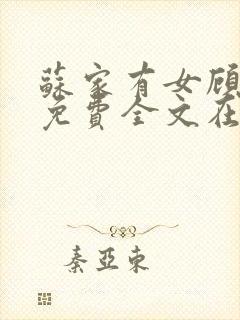 蘇家有女顾
免費全文在
秦亞東